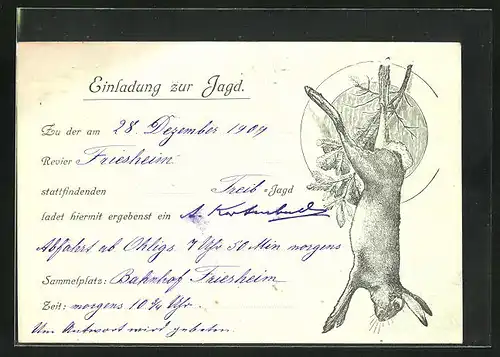 Einladung zur Jagd.
Zu der am 28. Dezember 1909
Revier Friesheim
stattfindenden Treib-Jagd
ladet hiermit ergebenst ein A.
Abfahrt ab Ohligs 7 Uhr 50 Min morgens
Sammelplatz: Bahnhof Friesheim
Zeit: morgens 10 ¼ Uhr.
Um Antwort wird gebeten.